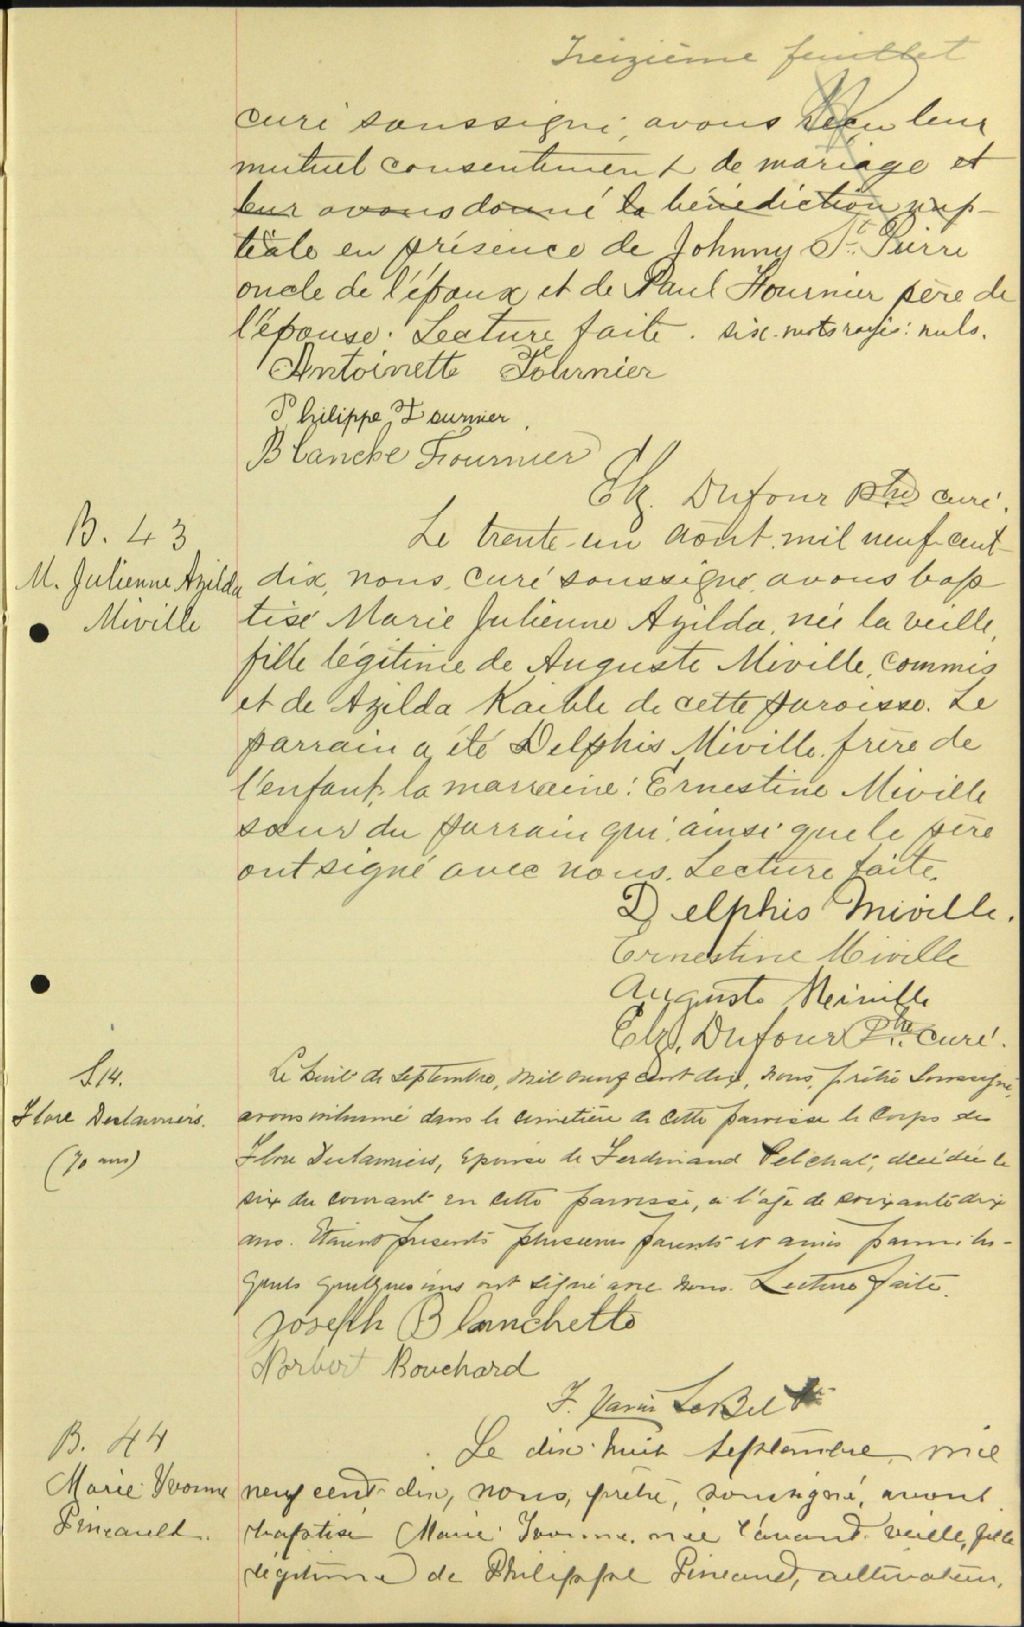 Treizième feuillet
curé soussigné, avons reçu leur
mutuel consentement de mariage et
leur avons donné la bénédiction nup-
tiale en présence de Johnny St. Pierre
oncle de l'époux et de Paul Fournier père de
l'épouse. Lecture faite. six mots rayés: nuls.
Antoinette Fournier
Philippe Fournier
Blanche Fournier
Elz. Dufour Ptre curé.
B. 43
M. Julienne Azilda
Miville
Le trente-un août mil neuf cent
dix, nous, curé soussigné, avons bap
tisé Marie Julienne Azilda, née la veille,
fille légitime de Auguste Miville, commis
et de Azilda Kaible de cette paroisse. Le
parrain a été Delphis Miville frère de
l'enfant, la marraine: Ernestine Miville
sœur du parrain qui ainsi que le père
ont signé avec nous. Lecture faite.
Delphis Miville.
Ernestine Miville
Auguste Miville
Elz. Dufour Ptre curé.
S 14.
Flore Deslauriers.
(70 ans)
Le huit de Septembre, mil neuf cent dix, nous, prêtre soussigné,
avons inhumé dans le cimetière de cette paroisse le corps de
Flore Deslauriers, épouse de Ferdinand Pelchat, décédée le
six du courant en cette paroisse, à l'âge de soixante dix
ans. Etaient présents plusieurs parents et amis parmi les-
quels quelques uns ont signé avec nous. Lecture faite.
Joseph Blanchette
Norbert Bouchard
F. Xavier LeBel
B. 44
Marie Yvonne
Pineault.
Le dix-huit septembre, mil
neuf cent-dix, nous, prêtre, soussigné, avons
baptisé Marie Yvonne, née l'avant-veille, fille
légitime de Philippe Pineault, cultivateur,